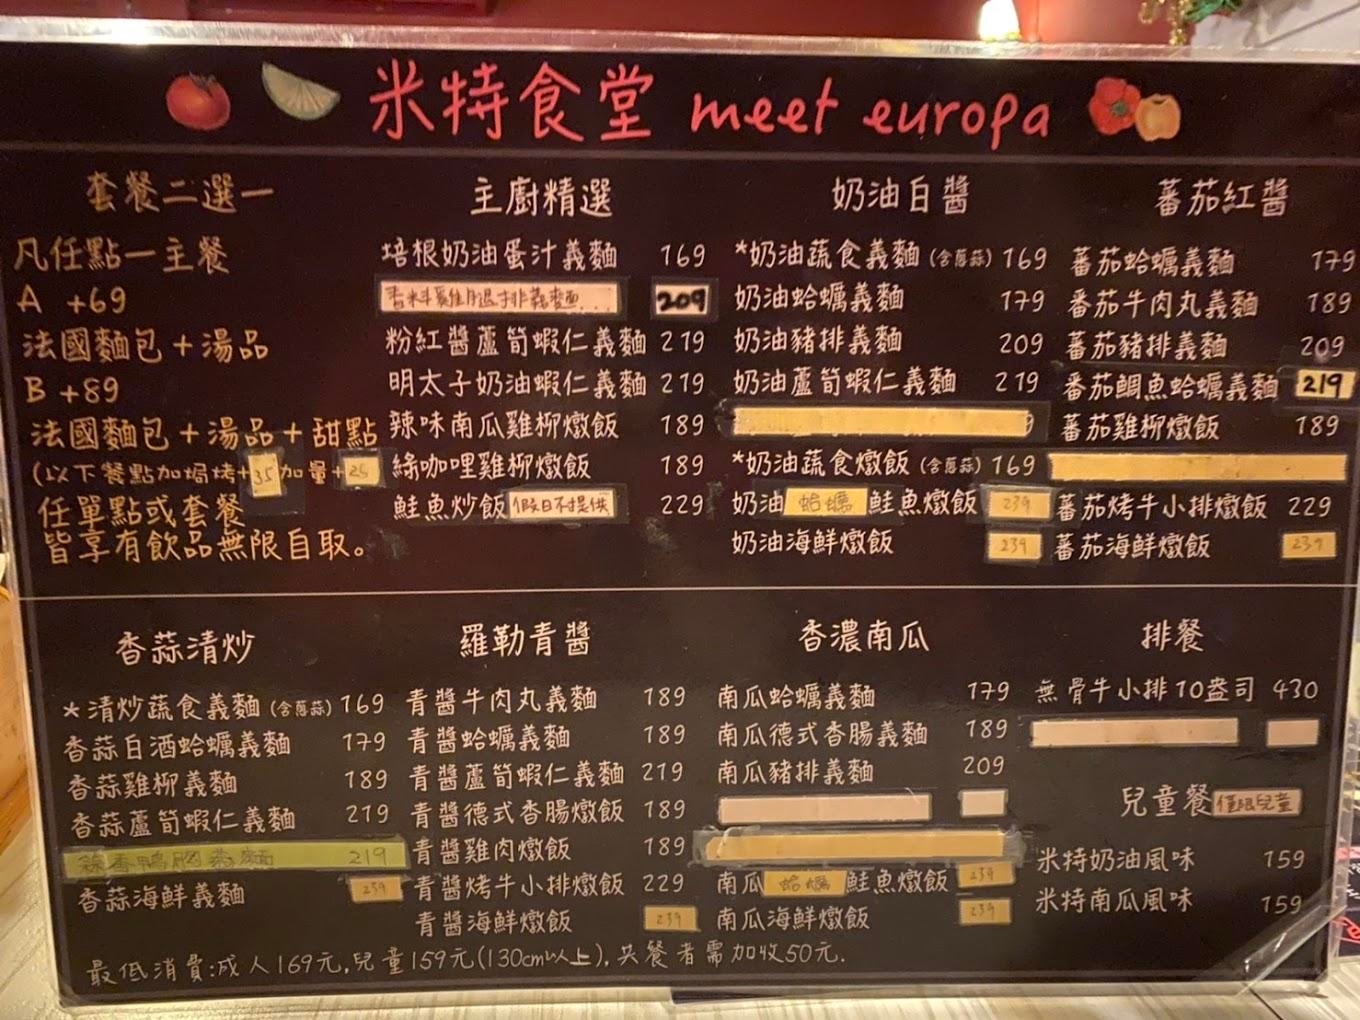 米特食堂 meet europa
套餐二選一
凡任點一主餐
A +69
法國麵包+湯品
B +89
法國麵包+湯品+甜點
(以下餐點加焗烤+35加量+25
任單點或套餐
皆享有飲品無限自取。
主廚精選
培根奶油蛋汁義麵 169
香料雞腿排義麵... 209
粉紅醬蘆筍蝦仁義麵 219
明太子奶油蝦仁義麵 219
辣味南瓜雞柳燉飯 189
綠咖哩雞柳燉飯 189
鮭魚炒飯 假日不提供 229
奶油白醬
*奶油蔬食義麵(含蔥蒜) 169
奶油蛤蠣義麵 179
奶油豬排義麵 209
奶油蘆筍蝦仁義麵 219
*奶油蔬食燉飯(含蔥蒜) 169
奶油蛤蠣鮭魚燉飯 239
奶油海鮮燉飯 239
蕃茄紅醬
蕃茄蛤蠣義麵 179
番茄牛肉丸義麵 189
蕃茄豬排義麵 209
番茄鯛魚蛤蠣義麵 219
蕃茄雞柳燉飯 189
蕃茄烤牛小排燉飯 229
蕃茄海鮮燉飯 239
香蒜清炒
*清炒蔬食義麵(含蔥蒜) 169
香蒜白酒蛤蠣義麵 179
香蒜雞柳義麵 189
香蒜蘆筍蝦仁義麵 219
蒜香鴨胸義麵 219
香蒜海鮮義麵 239
羅勒青醬
青醬牛肉丸義麵 189
青醬蛤蠣義麵 189
青醬蘆筍蝦仁義麵 219
青醬德式香腸燉飯 189
青醬雞肉燉飯 189
青醬烤牛小排燉飯 229
青醬海鮮燉飯 239
香濃南瓜
南瓜蛤蠣義麵 179
南瓜德式香腸義麵 189
南瓜豬排義麵 209
南瓜蛤蠣鮭魚燉飯 239
南瓜海鮮燉飯 239
排餐
無骨牛小排10盎司 430
兒童餐 僅限兒童
米特奶油風味 159
米特南瓜風味 159
最低消費:成人169元,兒童159元(130cm以上),共餐者需加收50元.